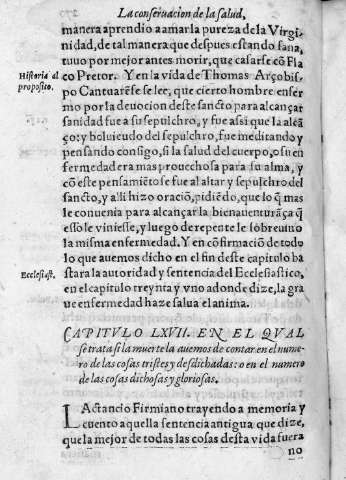 La conseruacion de la salud,
manera aprendio a amar la pureza de la Virgi
nidad, de tal manera que despues estando sana,
tuuo por mejor antes morir, que casarse cõ Fla
co Pretor. Y en la vida de Thomas Arçobis-
po Cantuarẽse se lee, que cierto hombre enfer
mo por la deuocion deste sancto para alcançar
sanidad fue a su sepulchro, y fue assi que la alcã
ço: y boluiendo del sepulchro, fue meditando y
pensando consigo, si la salud del cuerpo, o su en
fermedad era mas prouechosa para su alma, y
cõ este pensamiẽto se fue al altar y sepulchro del
sancto, y alli hizo oraciõ, pidiẽdo, que lo q̃ mas
le conuenia para alcançar la bienauenturãça q̃
esso le viniesse, y luego de repente le sobreuino
la misma enfermedad. Y en cõfirmaciõ de todo
lo que auemos dicho en el fin deste capitulo ba
stara la autoridad y sentencia del Ecclesiastico,
en el capitulo treynta y vno adonde dize, la gra
ue enfermedad haze salua el anima.
Historia al
proposito.
Ecclesiast.
CAPITVLO LXVII. EN EL QVAL
se trata si la muerte la auemos de contar en el nume
ro de las cosas tristes y desdichadas: o en el numero
de las cosas dichosas y gloriosas.
LActancio Firmiano trayendo a memoria y
cuento aquella sentencia antigua que dize,
que la mejor de todas las cosas desta vida fuera
no